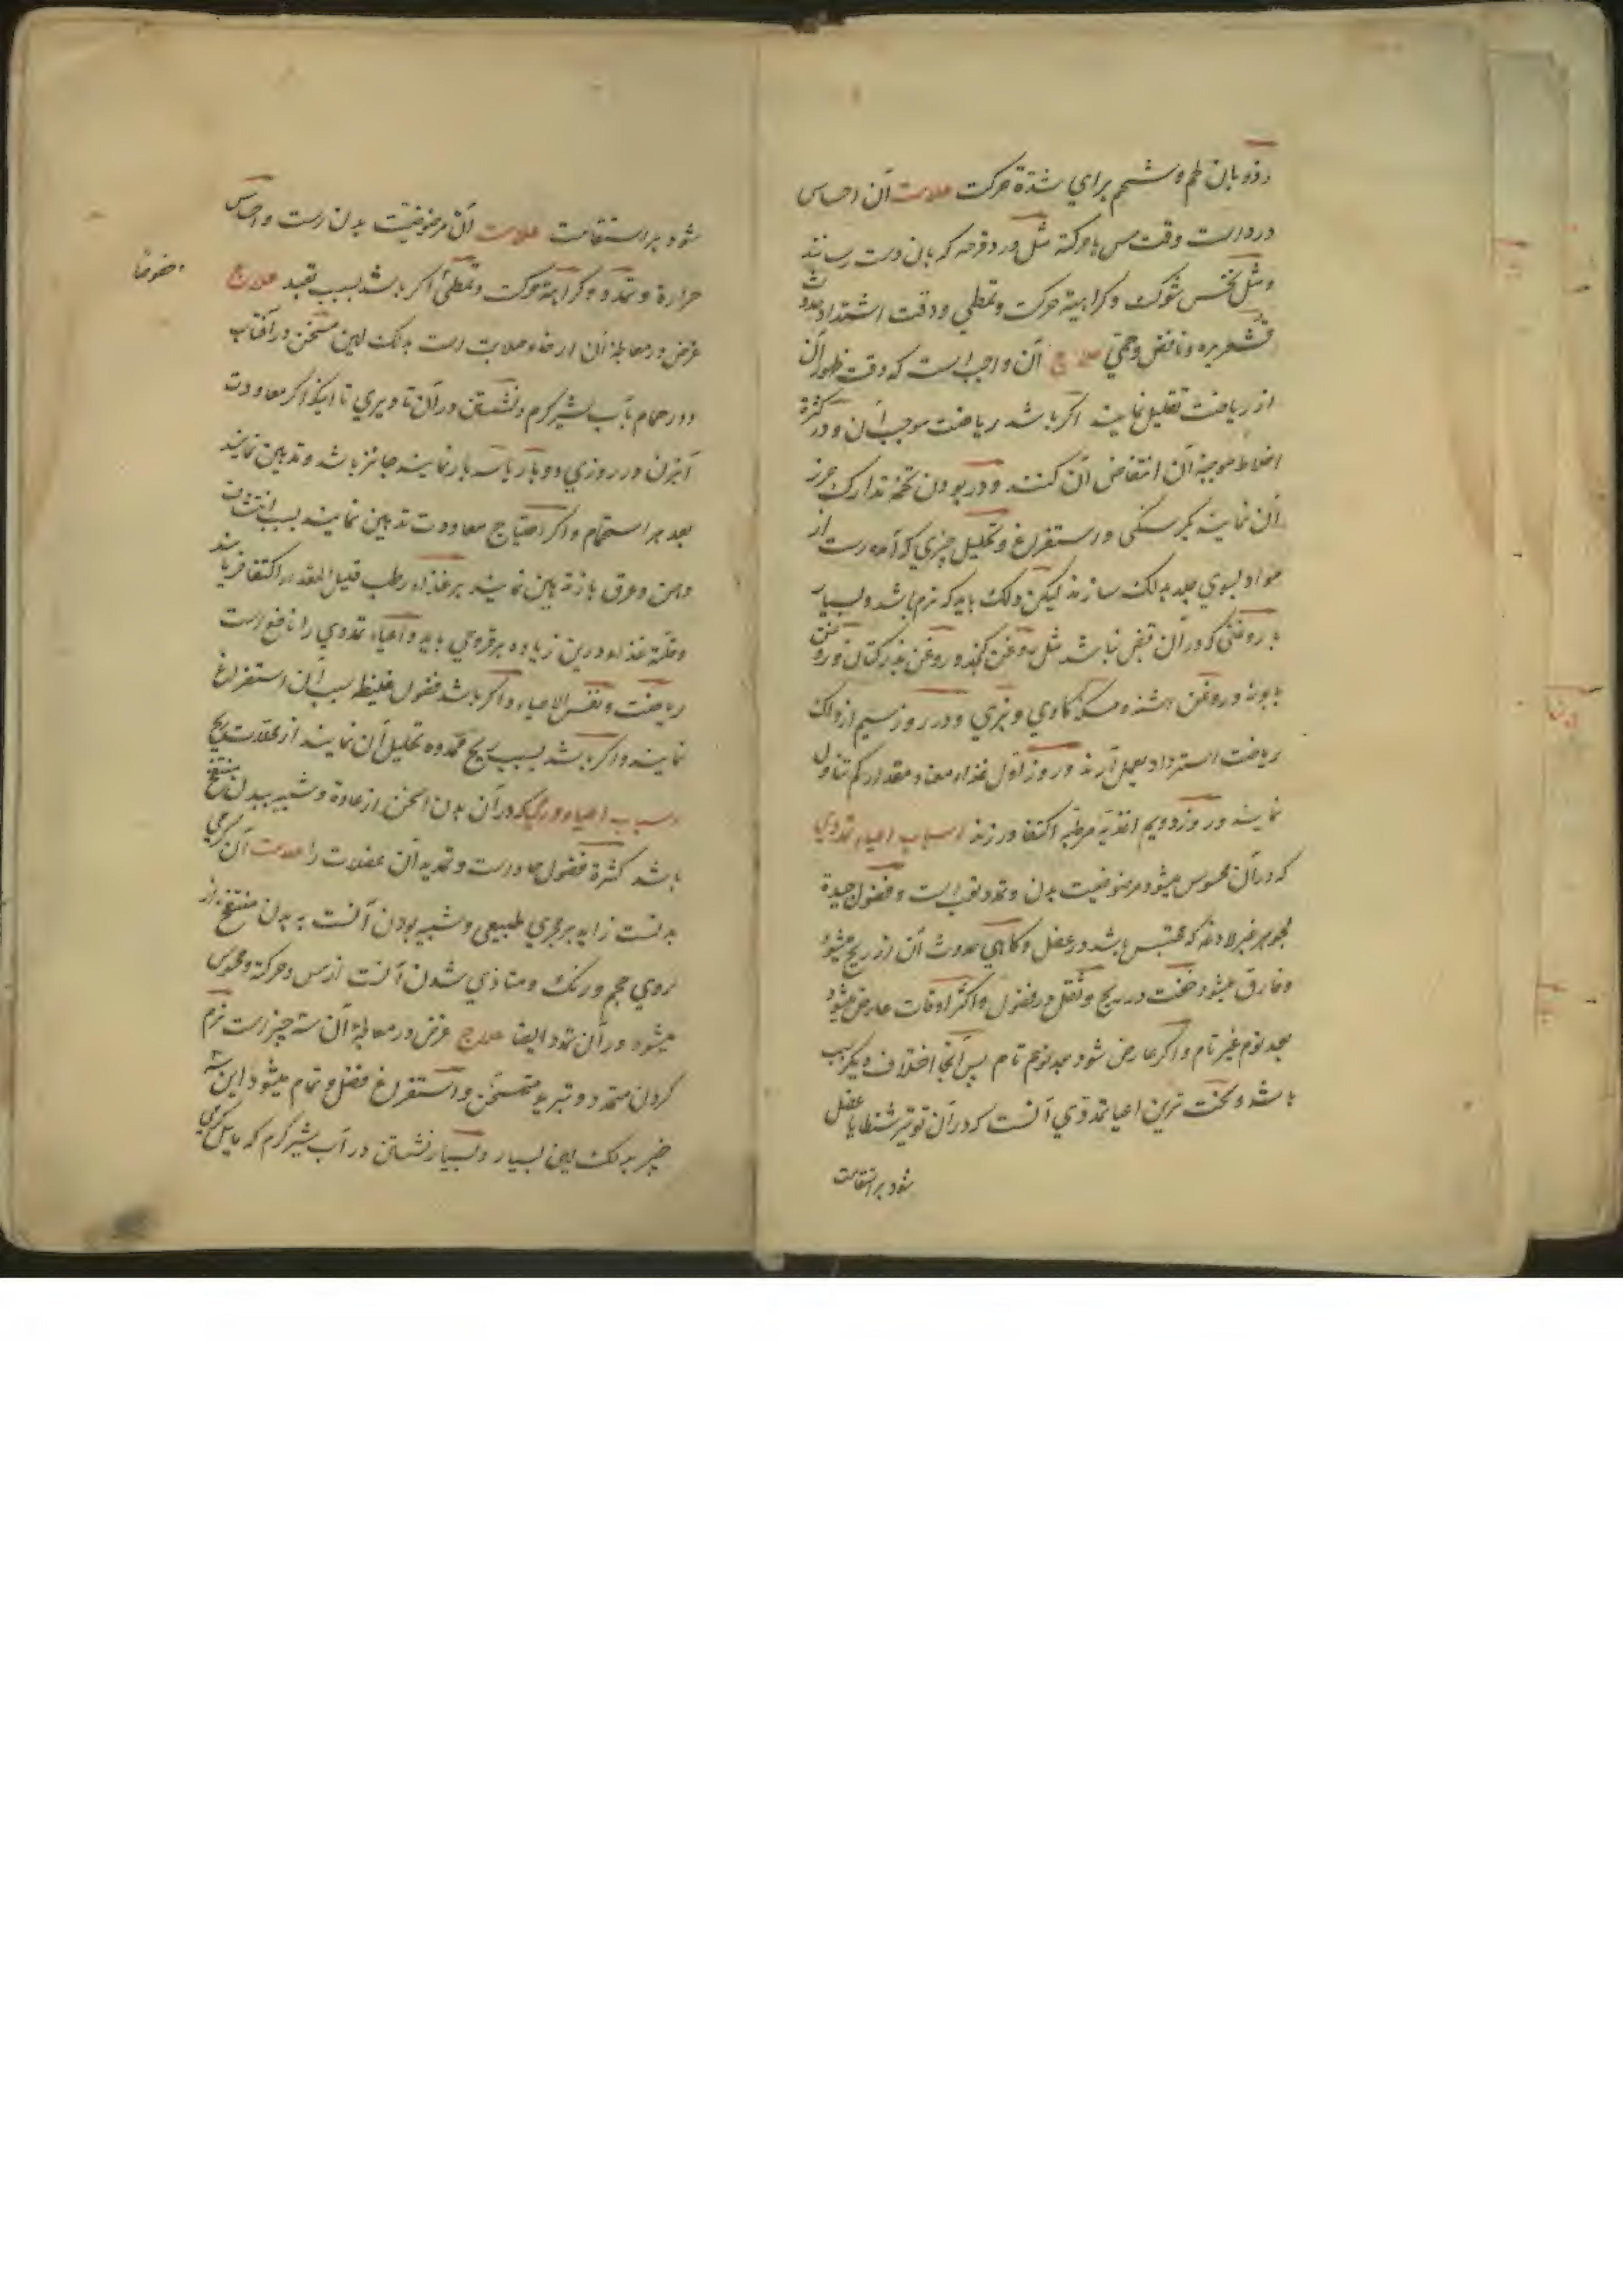 وذوبان لحم و شحم براي شدّة حركت علامت آن احساس
درد است وقت مس باحركة مثل درد قرحه كه بان دست رسانند
و مثل نخس شوك و كراهية حركت و تمطي و وقت اشتداد حدوث
قشعريره و نافض و حمّي علاج آن واجب است كه وقت ظهور آن
از رياضت تقليل نمايند اكر باشد رياضت موجب آن و در كثرة
اخلاط موجبه آن انتفاض آن كنند و در بودن تخمه تدارك
آن نمايند بكرسنكي و استفراغ و تحليل چيزي كه آمده است از
مواد بسوي جلد بدلك سازند ليكن دلك بايد كه نرم باشد و بسيار
با روغني كه در آن قبض نباشد مثل روغن كنجد و روغن بذر كتان و روغن
بابونه و روغن شبت و مسكه كاوي و بزي و در روز سيم از دلك
رياضت استرداد بعمل آرند و روز اول غذاء معتاد مقدار كم تناول
نمايند و روز دويم اغذيه مرطبه اكتفا ورزند اسباب اعياء تمددي
كه در آن محسوس ميشود مرضوضيت بدن و تمدد تعب است و فضول جيدة
الجوهر غير لاذعه كه محتبس باشد در عضل و كاهي حدوث آن از ريح ميشود
و فارق ميشود خفت در ريح و ثقل در فضول و اكثر اوقات عارض ميشود
بعد نوم غير تام و اكر عارض شود بعد نوم تام پس آنجا اختلاف ديكر سبب
باشد و سخت ترين اعيا تمددي آنست كه در آن توتير شظايا عضل
شود بر استقامت
شود بر استقامت علامت آن مرضوضيت بدن است و احساس
حرارة و تمدد و كراهية حركت و تمطي اكر باشد بسبب تعبد علاج
خصوصا
غرض در معالجه آن ارخاء صلابت است بدلك لين مسخن در آفتاب
و در حمام بآب شيركرم و نشستن در آن تا ديري تا اينكه اكر معاودت
آبزن در روزي دو بار يا سه بار نمايند جائز باشد و تدهين نمايند
بعد هر استحمام و اكر احتياج معاودت تدهين نمايند بسبب انتشاف
دهن و عرق باز تدهين نمايند بر غذاء رطب قليل المقدار اكتفا فرمايند
و قلّة غذاء درين زياده بر قروحي بايد و اعياء تمددي را نافع است
رياضت و نفس الاعياء و اكر باشد فضول غليظ سبب آن استفراغ
نمايند و اكر باشد بسبب ريح ممدده تحليل آن نمايند از محللات ريح
اسباب اعياء ورمي كه در آن بدن اسخن از عادة و شبيه ببدن منتفخ
باشد كثرة فضول حاد است و تمديد آن عضلات را علامت آن كرمي
بدنست زايد بر مجري طبيعي و شبيه بودن آنست به بدن منتفخ از
روي حجم و رنك و متاذي شدن آنست از مس و حركة و محسوس
ميشود در آن تمدد ايضا علاج غرض در معالجه آن سه چيز است نرم
كردن متمدد و تبريد متسخن و استفراغ فضل و تمام ميشود اين سه
چيز بدلك لين بسيار و بسيار نشستن در آب شيركرم كه مايل بكرمي